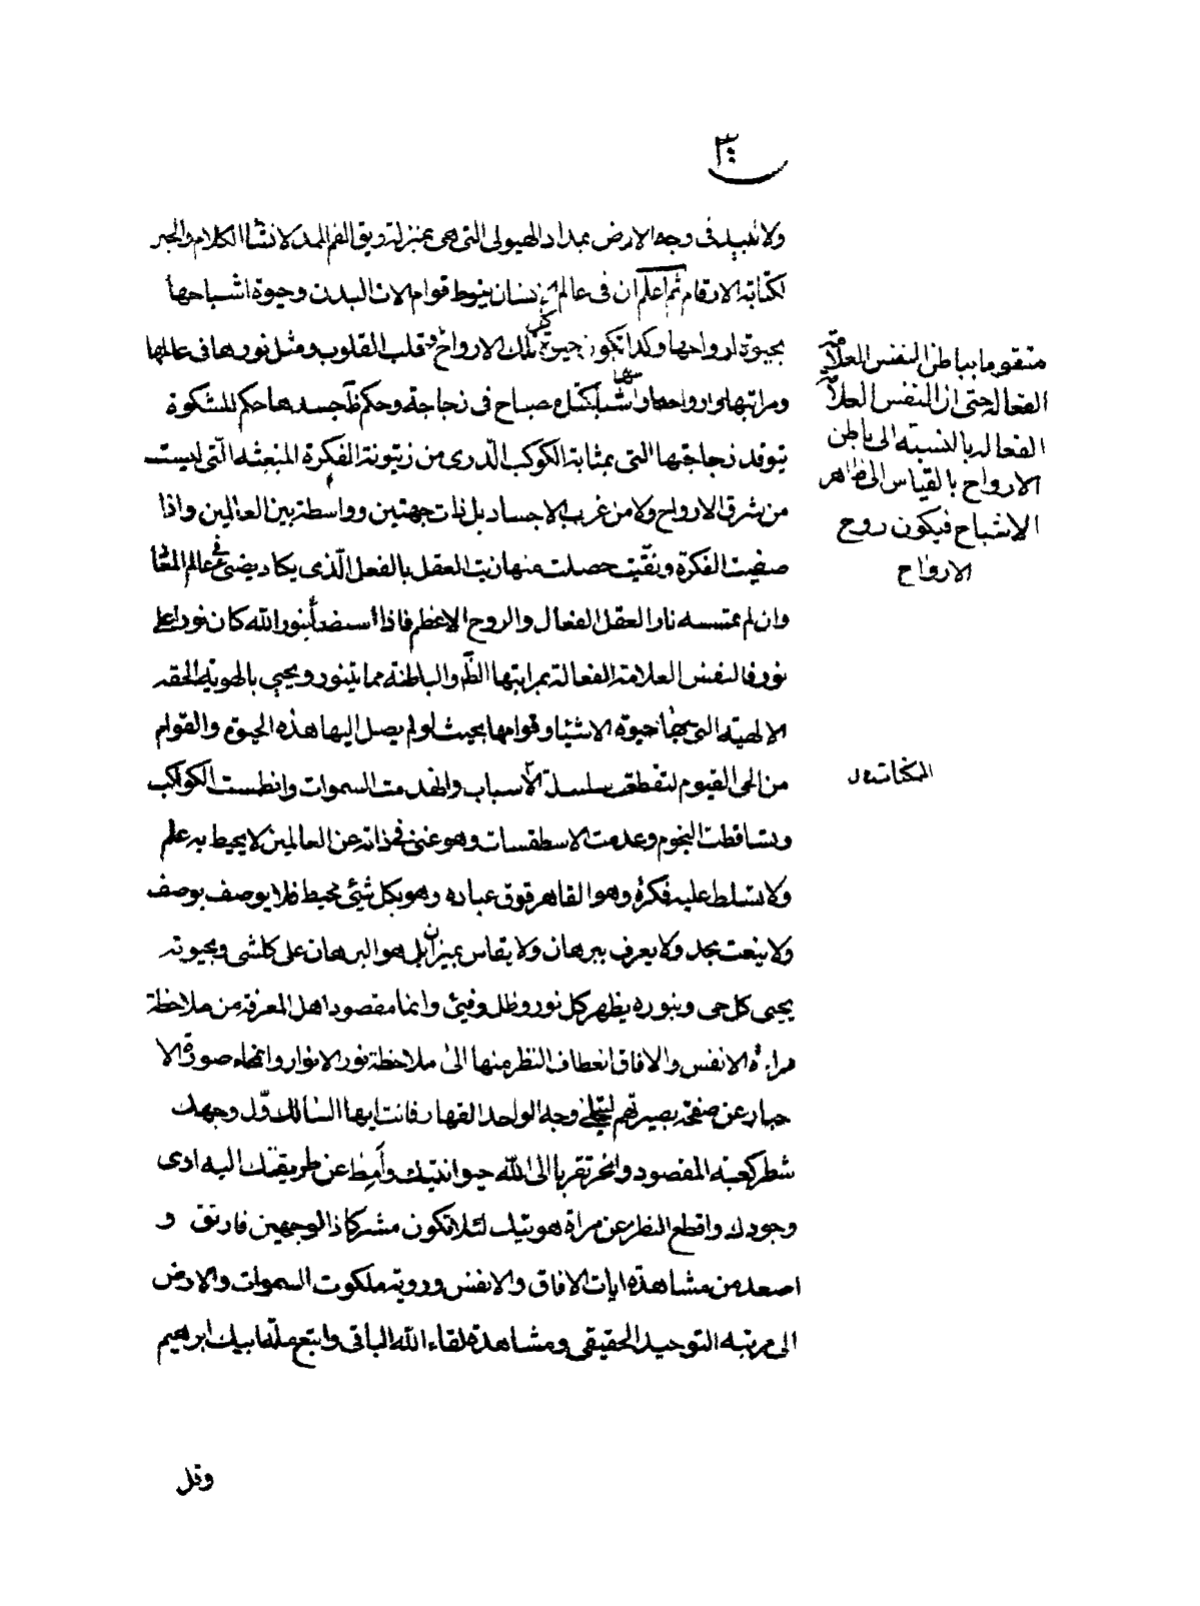 ٣٠
ولا تلبيد فى وجه الارض بمداد الهيولى التى هى بمنزلة ريق الفم المد لانشاء الكلام والحبر
لكتابة الارقام ثم اعلم ان فى عالم الانسان ينوط قوام الات البدن وحيوة اشباحها
بحيوة ارواحها وكذا تكون حيوة تلك الارواح وقلب القلوب ومثل نورها فى عالمها
ومراتبها وارواحها واشباحها كمثل مصباح فى زجاجة وحكم جسدها حكم المشكوة
يتوقد زجاجتها التى بمثابة الكوكب الدرى من زيتونة الفكرة المنبعثه التى ليست
من شرق الارواح ولا من غرب الاجساد بل ذات جهتين وواسطة بين العالمين واذا
صفيت الفكرة ونقيت حصلت منها زيت العقل بالفعل الذى يكاد يضئ فى عالم
وان لم تمسسه نار العقل الفعال والروح الاعظم فاذا استضاء بنور الله كان نورا على
نور فالنفس العلامة الفعالة بمراتبها الظ والباطنة مما يتنور ويحيى بالهوية الحقه
الالهية التى بها حيوة الاشياء وقوامها بحيث لو لم يصل اليها هذه الحيوة والقوام
من الحى القيوم لتقطعت سلسلة الاسباب وانهدمت السموات وانطمست الكواكب
وتساقطت النجوم وعدمت الاسطقسات وهو غنى فى ذاته عن العالمين لا يحيط به علم
ولا تسلط عليه فكرة وهو القاهر فوق عباده وهو بكل شئ محيط فلا يوصف بوصف
ولا ينعت بحد ولا يعرف ببرهان ولا يقاس بميزان بل هو البرهان على كلشى وبحيوته
يحيى كل حى وبنوره يظهر كل نور وظل وفيئ وانما مقصود اهل المعرفة من ملاحظة
مراة الانفس والافاق انعطاف النظر منها الى ملاحظة نور الانوار وانمحاء صورة الا
حبار عن صفحة بصيرتهم ليتجلى وجه الواحد القهار فانت ايها السالك ول وجهك
شطر كعبة المقصود وانحر تقربا الى الله حيوانيتك وامط عن طريقتك اليه اذى
وجودك واقطع النظر عن مراة هويتك لئلا تكون مشركا ذا الوجهين فارتق و
اصعد من مشاهدة ايات الافاق والانفس وروية ملكوت السموات والارض
الى مرتبة التوحيد الحقيقى ومشاهدة لقاء الله الباقى واتبع ملة ابيك ابراهيم
وقل
متقوما بباطن النفس العلامة
الفعالة حتى ان النفس العلامة
الفعالة بالنسبة الى باطن
الارواح بالقياس الى ظاهر
الاشباح فيكون روح
الارواح